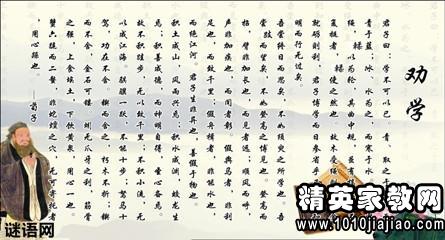 劝学
君子曰：学不可以已。青，取之于
青于蓝；冰，水为之，而寒于水
绳，輮以为轮，其曲中规。虽有槁
复挺者，輮使之然也。故木受绳
就砺则利，君子博学而日参省乎
明而行无过矣。
吾尝终日而思矣，不如须臾之所学也。
尝跂而望矣，不如登高之博见也。登高而
招，臂非加长也，而见者远；顺风而呼，
声非加疾也，而闻者彰。假舆马者，非利
足也，而致千里；假舟楫者，非能水也，
而绝江河。君子生非异也，善假于物也。
积土成山，风雨兴焉；积水成渊，蛟龙生
焉；积善成德，而神明自得，圣心备焉。
故不积跬步，无以至千里；不积小流，无
以成江海。骐骥一跃，不能十步；驽马十
驾，功在不舍。锲而舍之，朽木不折；锲
而不舍，金石可镂。蚓无爪牙之利，筋骨
之强，上食埃土，下饮黄泉，用心一也。
蟹六跪而二螯，非蛇鳝之穴无可寄托者，
用心躁也。——荀子
谜语网
精英家教网
www.1010jiajiao.com